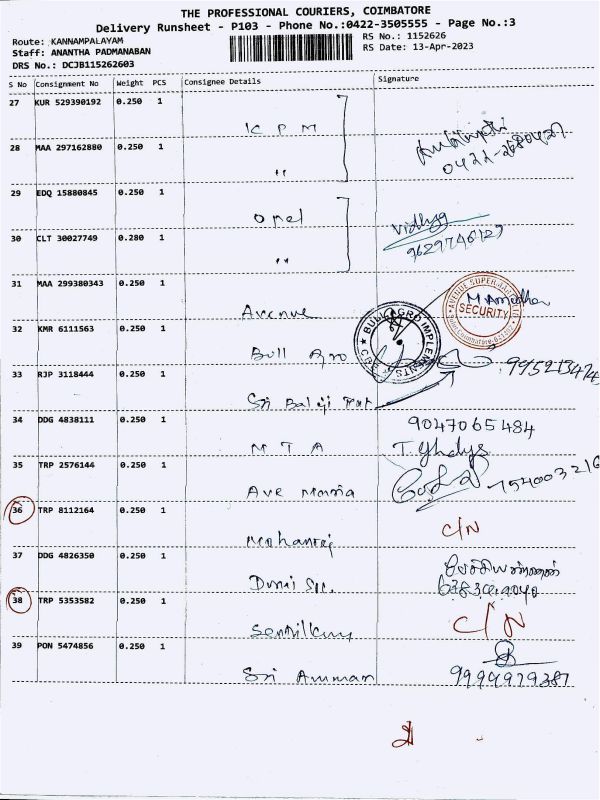 THE PROFESSIONAL COURIERS, COIMBATORE
Delivery Runsheet - P103 - Phone No.:0422-3505555 - Page No.:3
Route: KANNAMPALAYAM
Staff: ANANTHA PADMANABAN
DRS No.: DCJB115262603
RS No.: 1152626
RS Date: 13-Apr-2023
S No Consignment No Weight PCS Consignee Details Signature
27 KUR 529390192 0.250 1 K P M
28 MAA 297162880 0.250 1 "
0422-2680427
29 EDQ 15880845 0.250 1 Opel
Vidhya
30 CLT 30027749 0.280 1 "
9629746129
31 MAA 299380343 0.250 1 Avenue
SECURITY
32 KMR 6111563 0.250 1 Bull Agro
BULL AGRO IMPLEMENTS
33 RJP 3118444 0.250 1 Sri Balaji
34 DDG 4838111 0.250 1 M T A
9047065484
35 TRP 2576144 0.250 1 Ave Maria
36 TRP 8112164 0.250 1 Mohanraj
C/N
37 DDG 4826350 0.250 1
38 TRP 5353582 0.250 1
C/N
39 PON 5474856 0.250 1 Sri Amman